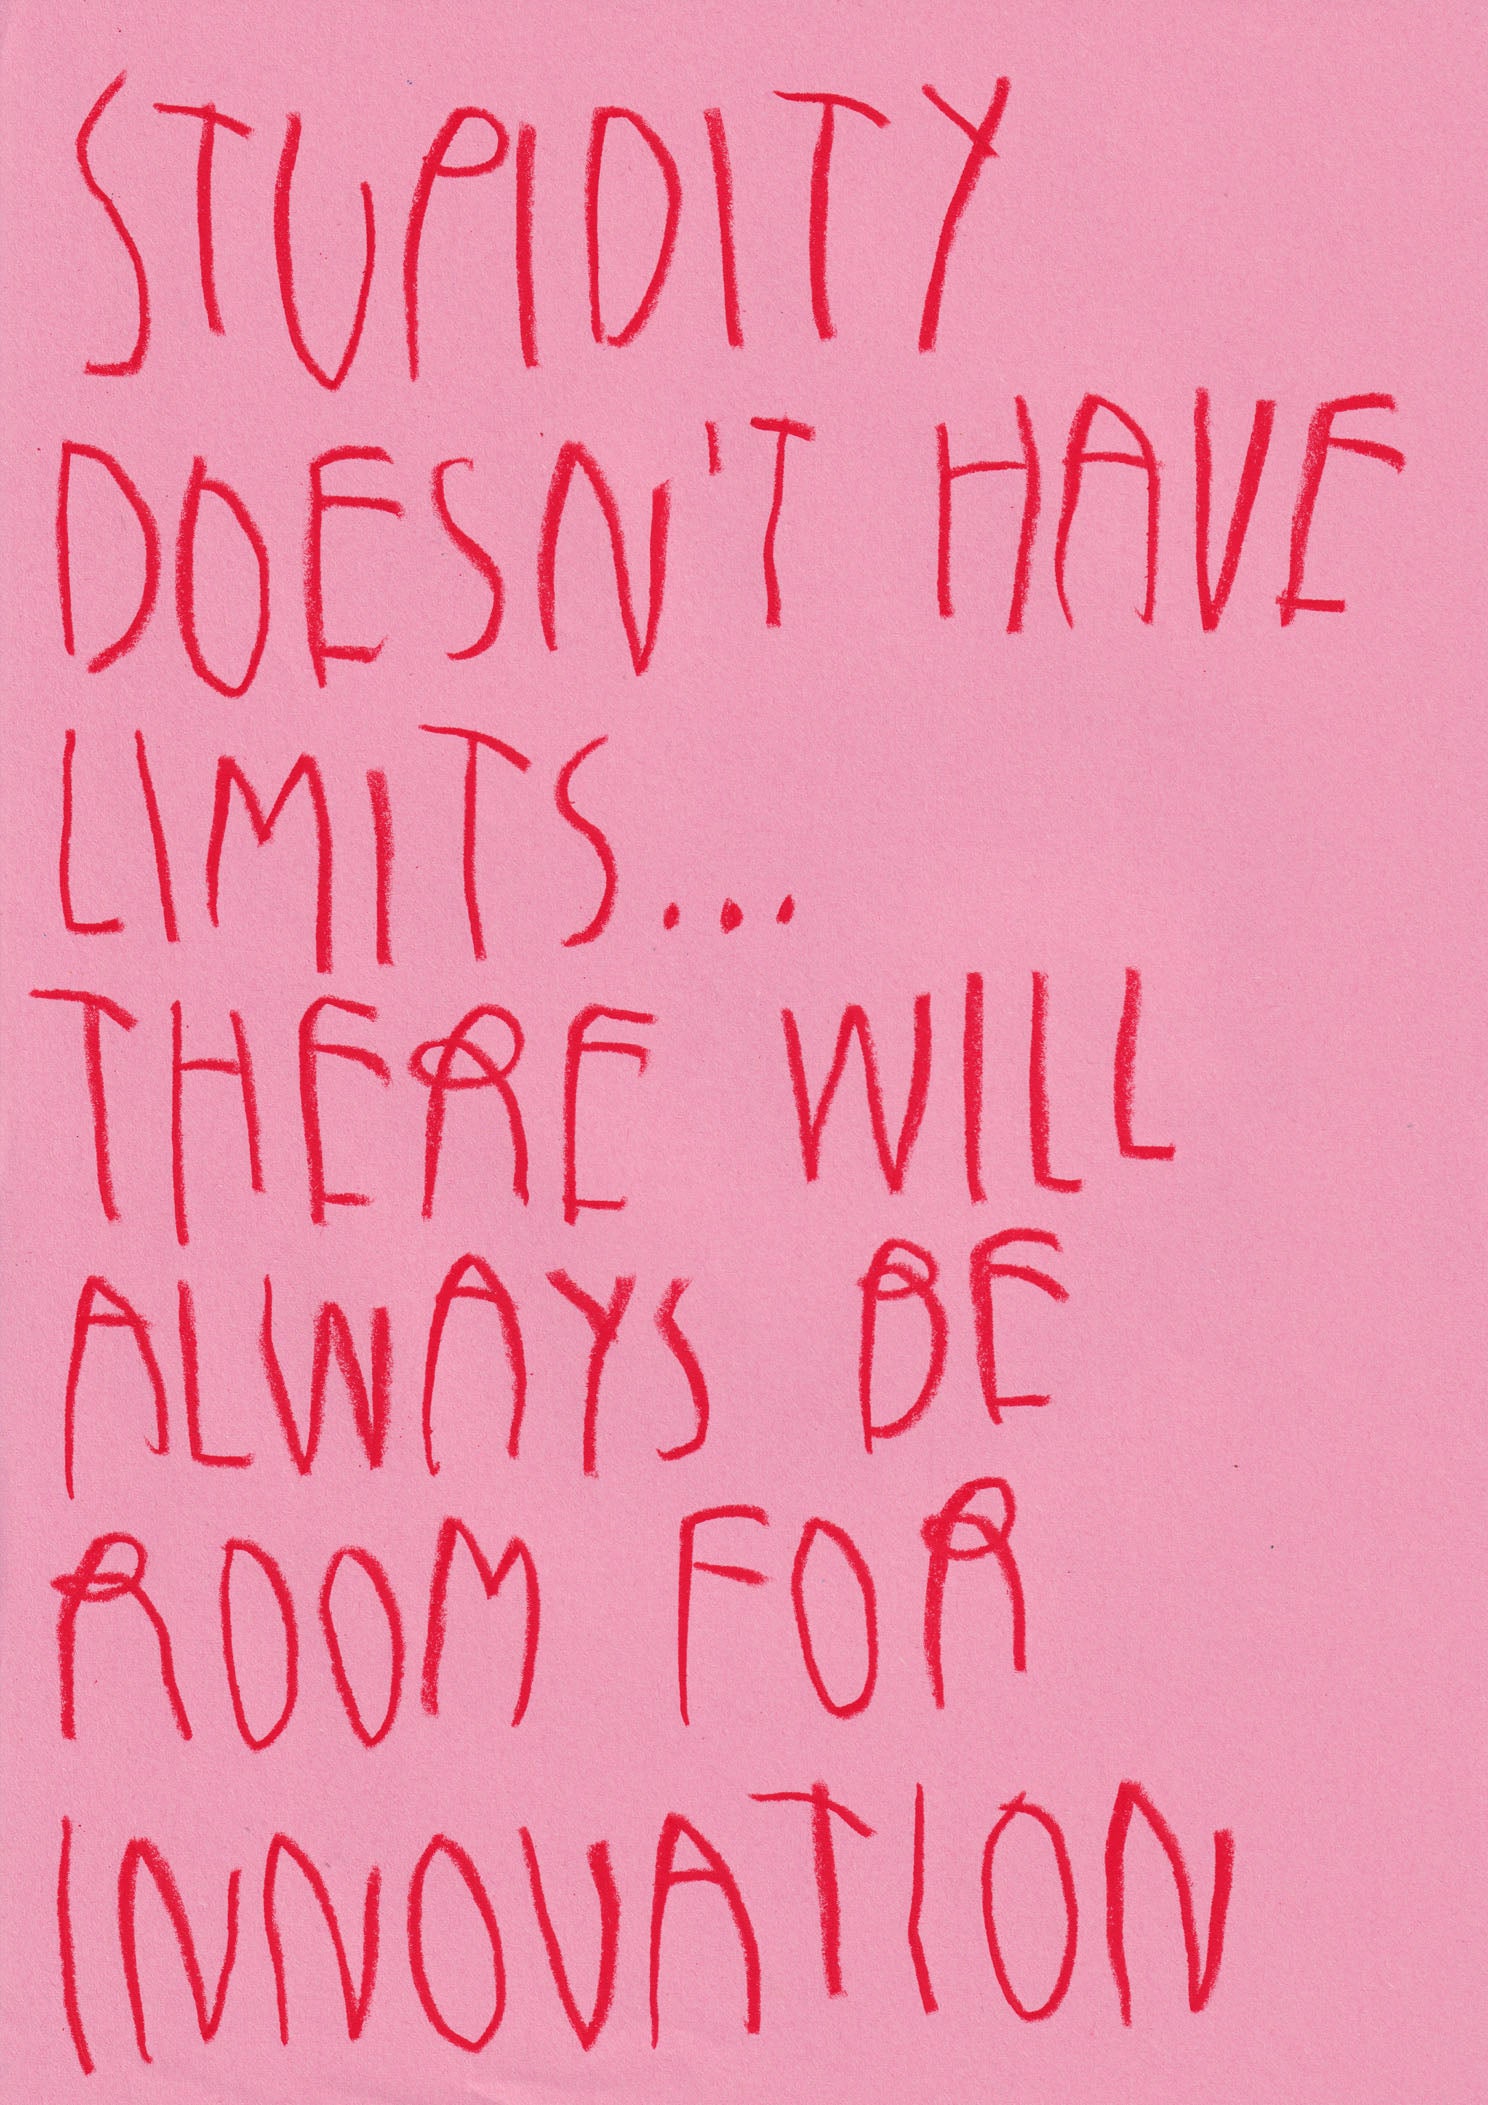 STUPIDITY
DOESN'T HAVE
LIMITS...
THERE WILL
ALWAYS BE
ROOM FOR
INNOVATION